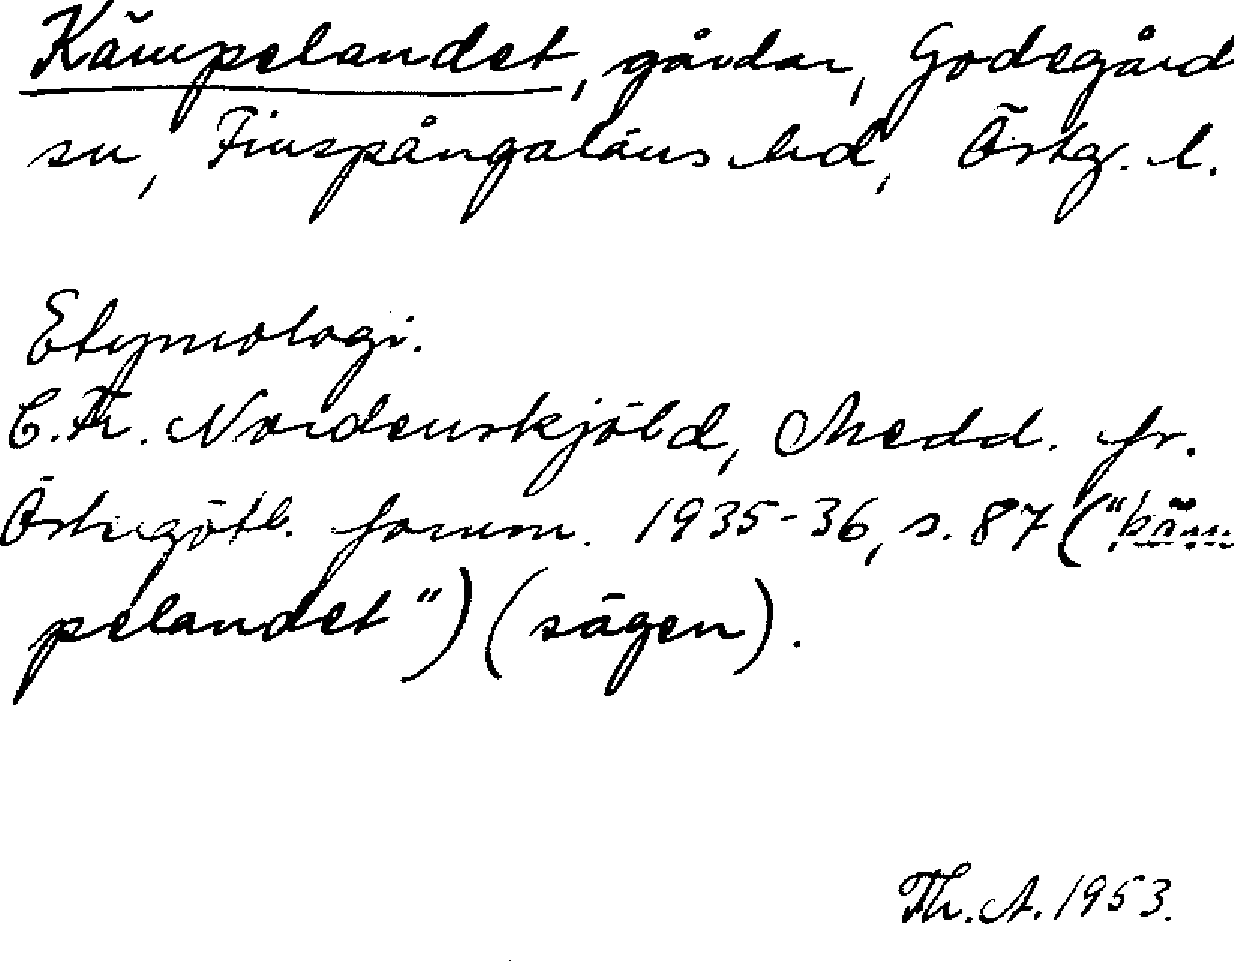 Kämpelandet, gårdar, Godegård
sn, Finspångaläns hd, Östg. l.
Etymologi.
C. Fr. Nordenskjöld, Medd. fr.
Östergötl. fornm. 1935-36, s. 87 ("käm
pelandet") (sägen).
Th. A. 1953.